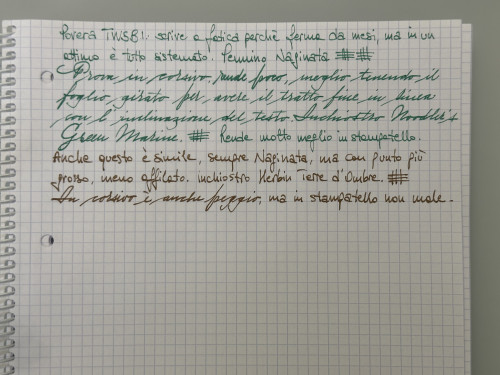 Povera TWSBI. scrive a fatica perchè ferma da mesi, ma in un
attimo è tutto sistemato. Pennino Naginata ## ##
Prova in corsivo, rende poco, meglio tenendo il
foglio girato per avere il tratto fine in linea
con l'inclinazione del testo. Inchiostro Noodler's
Green Marine. ## Rende molto meglio in stampatello.
Anche questo è simile, sempre Naginata, ma con punto più
grosso, meno affilato. inchiostro Herbin Terre d'Ombre. ##
In corsivo è anche peggio, ma in stampatello non male.